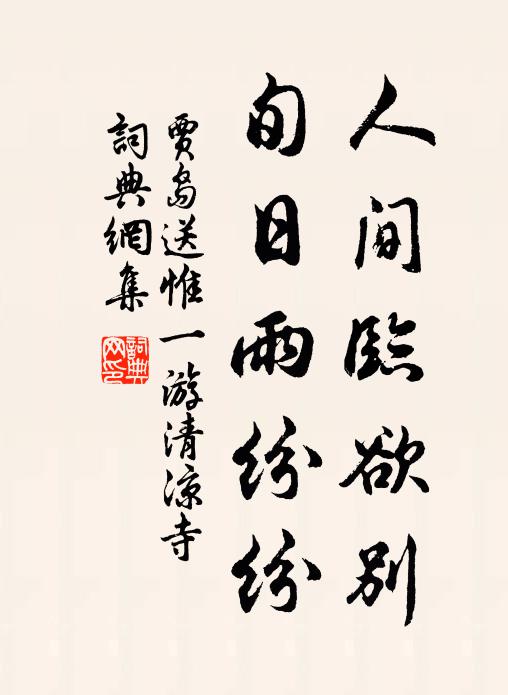 人間臨欲別
旬日雨紛紛
賈島送惟一游清涼寺
詞典網集
詞典網印